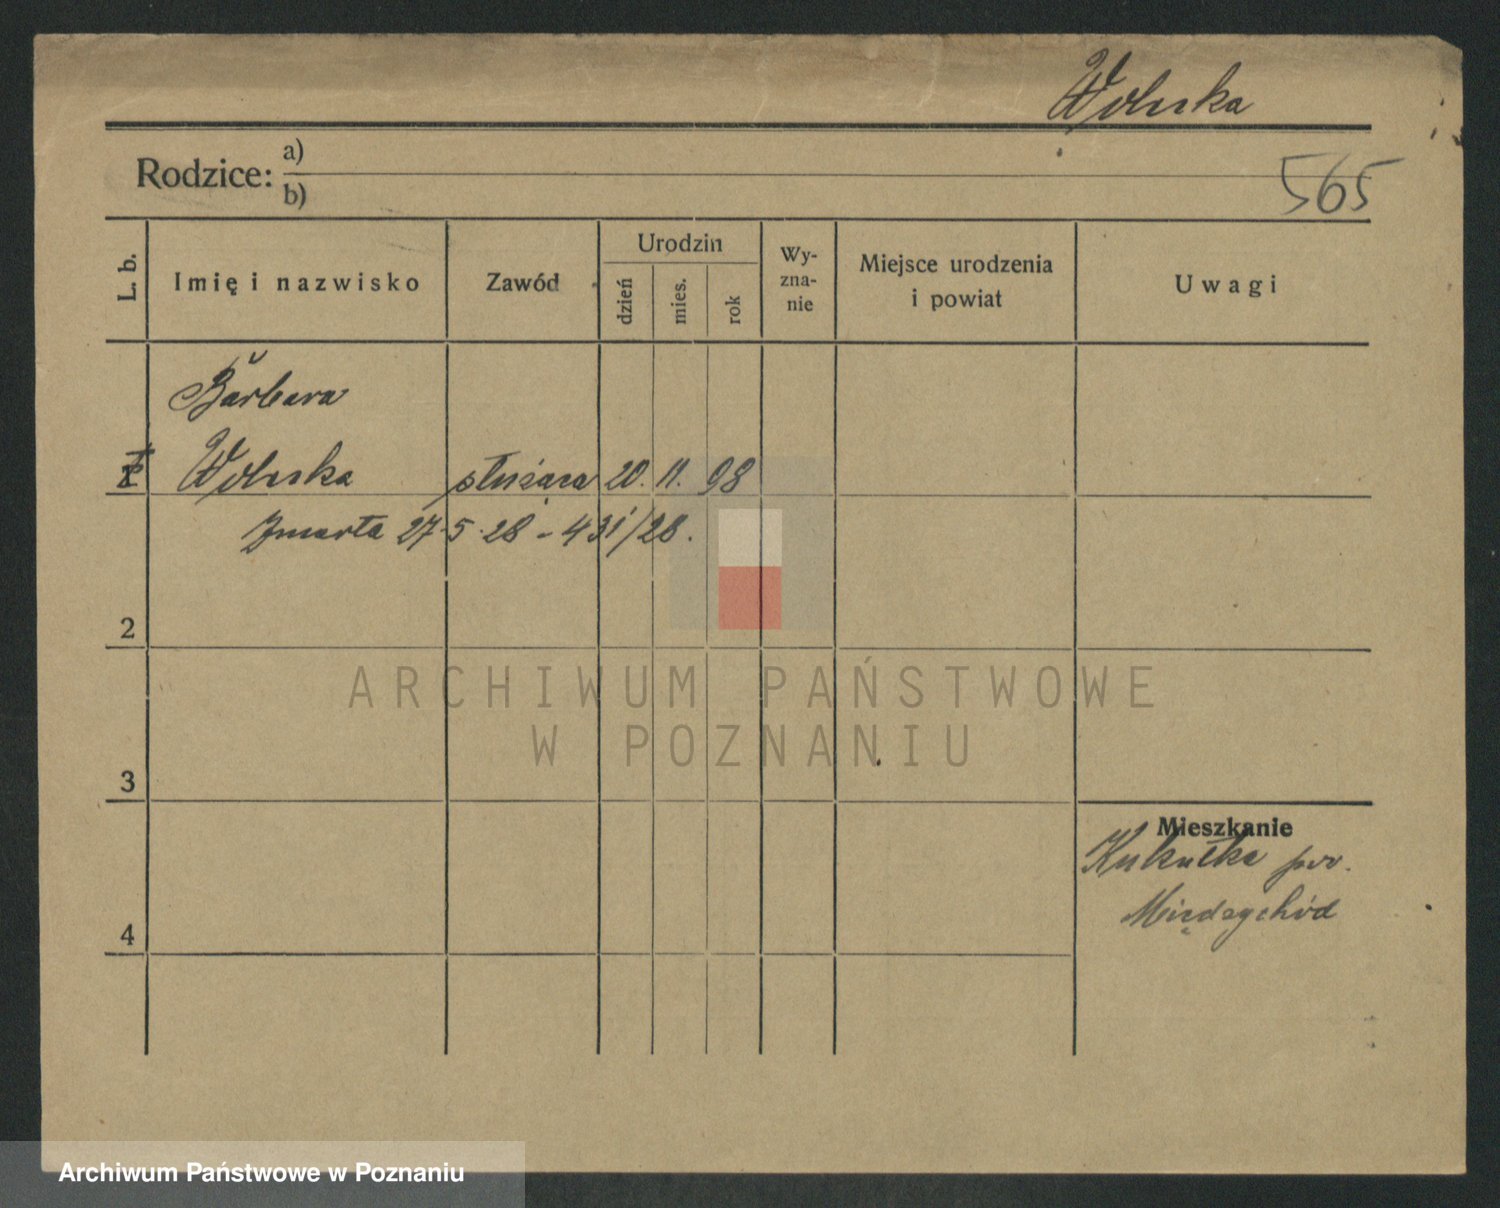 Wolnska
Rodzice: a)
b)
565
L. b.
Imię i nazwisko
Zawód
Urodzin
dzień
mies.
rok
Wy-
zna-
nie
Miejsce urodzenia
i powiat
Uwagi
Barbara
1 Wolnska służąca 20. 11. 98
Zmarła 27.5.28 - 431/28.
2
ARCHIWUM PAŃSTWOWE
W POZNANIU
3
Mieszkanie
Kukułka pow.
Międzychód
4
Archiwum Państwowe w Poznaniu